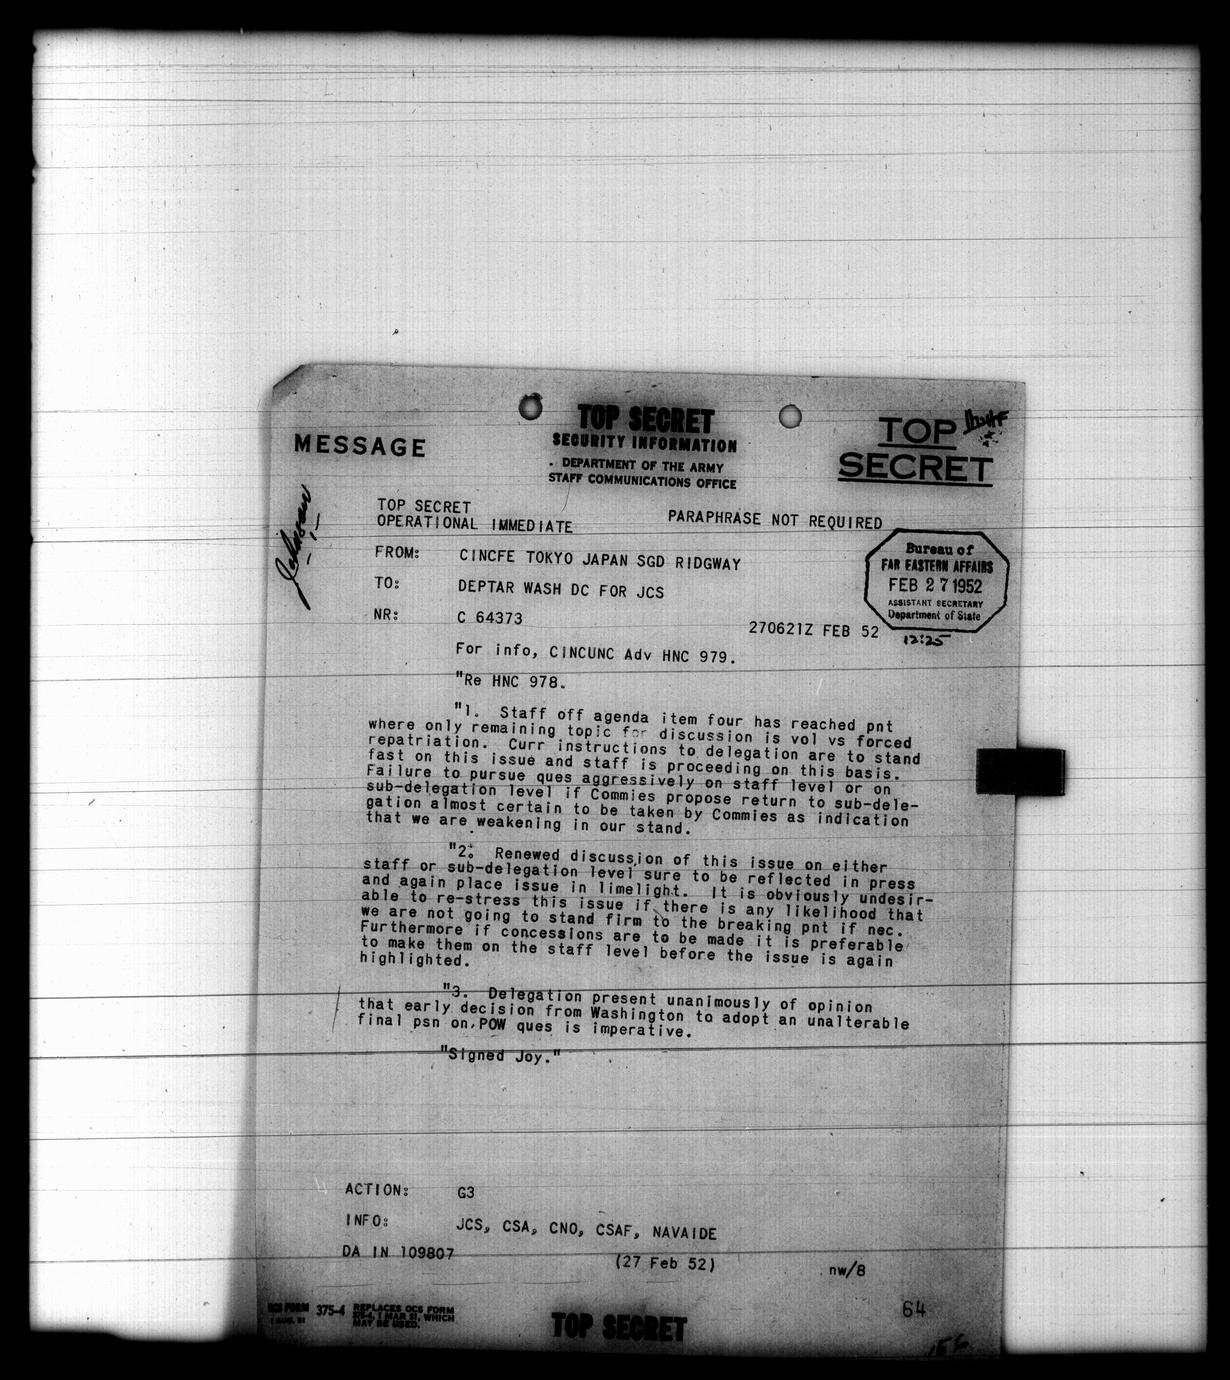 TOP SECRET
SECURITY INFORMATION
DEPARTMENT OF THE ARMY
STAFF COMMUNICATIONS OFFICE
MESSAGE
TOP
SECRET
TOP SECRET
OPERATIONAL IMMEDIATE
PARAPHRASE NOT REQUIRED
Bureau of
FAR EASTERN AFFAIRS
FEB 27 1952
ASSISTANT SECRETARY
Department of State
12:25
Johnson
FROM: CINCFE TOKYO JAPAN SGD RIDGWAY
TO: DEPTAR WASH DC FOR JCS
NR: C 64373
270621Z FEB 52
For info, CINCUNC Adv HNC 979.
"Re HNC 978.
"1. Staff off agenda item four has reached pnt
where only remaining topic for discussion is vol vs forced
repatriation. Curr instructions to delegation are to stand
fast on this issue and staff is proceeding on this basis.
Failure to pursue ques aggressively on staff level or on
sub-delegation level if Commies propose return to sub-dele-
gation almost certain to be taken by Commies as indication
that we are weakening in our stand.
"2. Renewed discussion of this issue on either
staff or sub-delegation level sure to be reflected in press
and again place issue in limelight. It is obviously undesir-
able to re-stress this issue if there is any likelihood that
we are not going to stand firm to the breaking pnt if nec.
Furthermore if concessions are to be made it is preferable
to make them on the staff level before the issue is again
highlighted.
"3. Delegation present unanimously of opinion
that early decision from Washington to adopt an unalterable
final psn on POW ques is imperative.
"Signed Joy."
ACTION: G3
INFO: JCS, CSA, CNO, CSAF, NAVAIDE
DA IN 109807
(27 Feb 52)
nw/8
OCS FORM 375-4 REPLACES OCS FORM
1 AUG. 51 375-4, 1 MAR 51, WHICH
MAY BE USED.
TOP SECRET
64